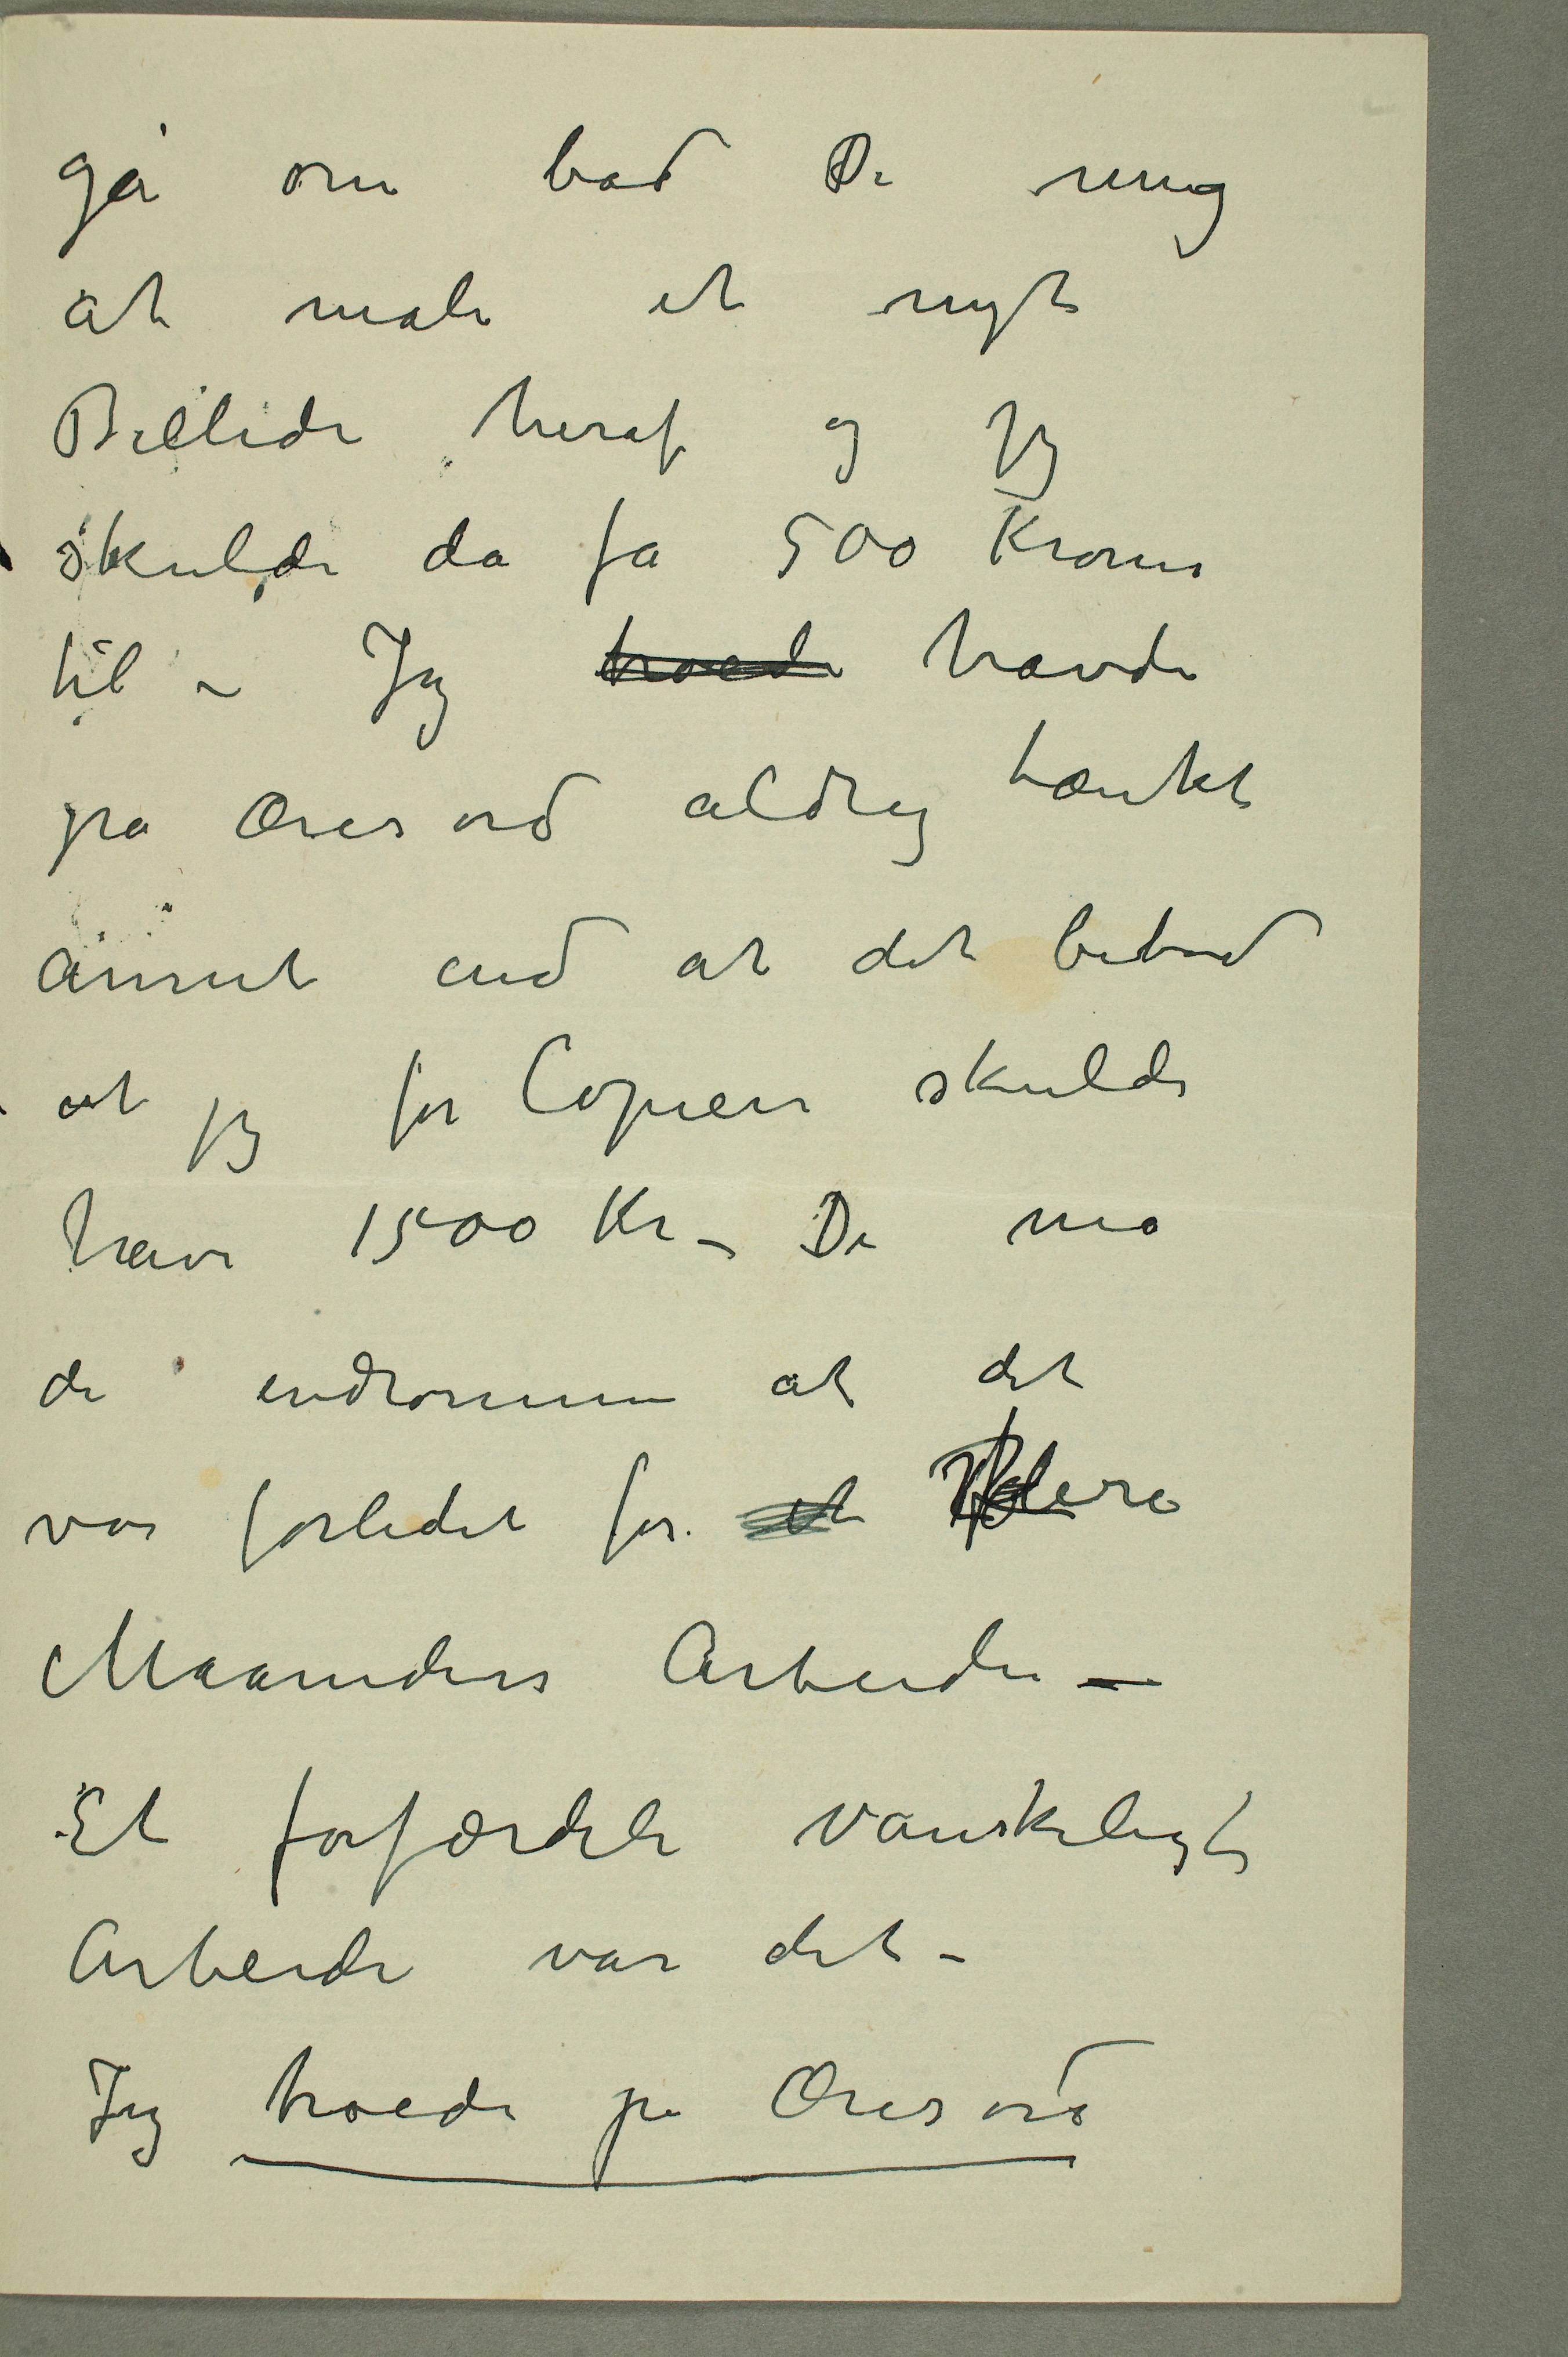 gå om bad De mig
at male et nyt
Billede heraf og jeg
skulde da få 500 Kroner
til – Jeg ~~troede~~ havde
på Æres ord aldrig tænkt
annet end at det betød
at jeg for Copien skulde
have 1500 Kr – De må
da indrømme at det
var forledet for flere
Maaneders Arbeide –
Et forfærdeli vanskeligt
Arbeide var det –
Jeg troede på Æres ord